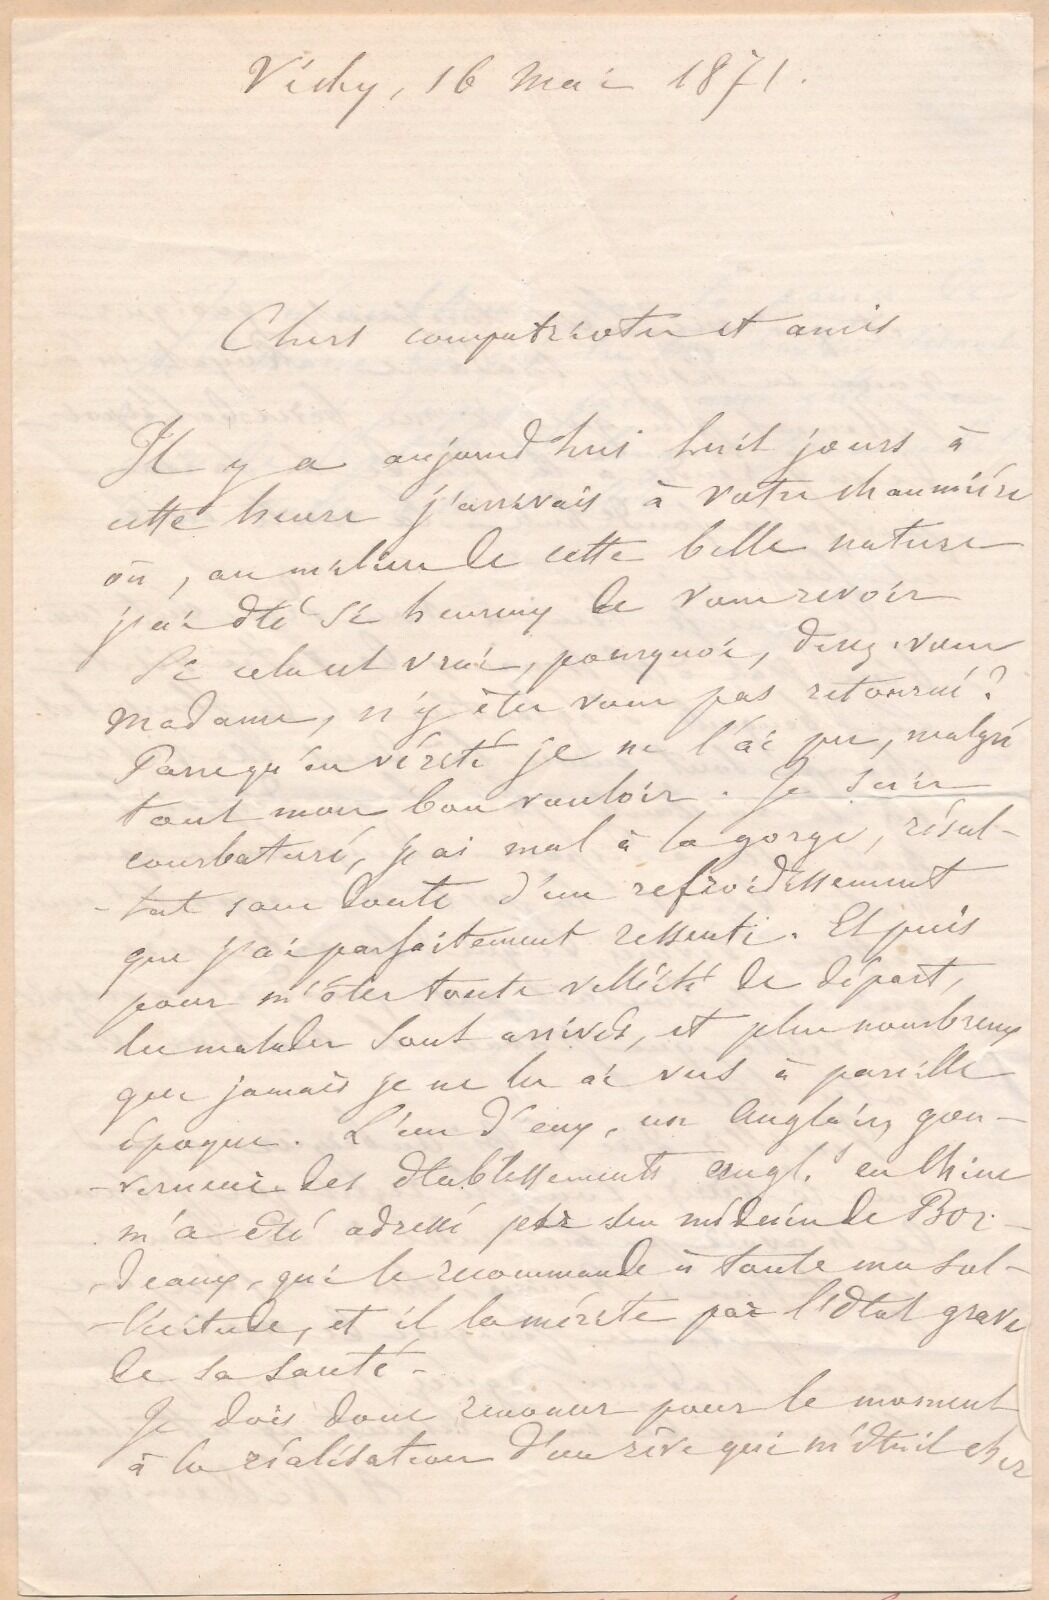 Vichy, 16 Mai 1871.
Chers compatriotes et amis
Il y a aujourd'hui huit jours à
cette heure j'arrivais à votre chaumière
où, au milieu de cette belle nature
j'ai été si heureux de vous revoir
Si cela est vrai, pourquoi, direz-vous
Madame, n'y êtes vous pas retourné?
Parcequ'en vérité je ne l'ai pu, malgré
tout mon bon vouloir. Je suis
courbaturé, j'ai mal à la gorge, résul-
-tat sans doute d'un refroidissement
que j'ai parfaitement ressenti. Et puis
pour m'ôter toute velléité de départ,
les malades sont arrivés, et plus nombreux
que jamais je ne les ai vus à pareille
époque. L'un d'eux, un Anglais, gou-
-verneur des établissements angl.s en Chine
m'a été adressé par son médecin de Bor-
-deaux, qui le recommande à toute ma sol-
-licitude, et il la mérite par l'état grave
de sa santé.
Je dois donc renoncer pour le moment
à la réalisation d'un rêve qui m'était cher